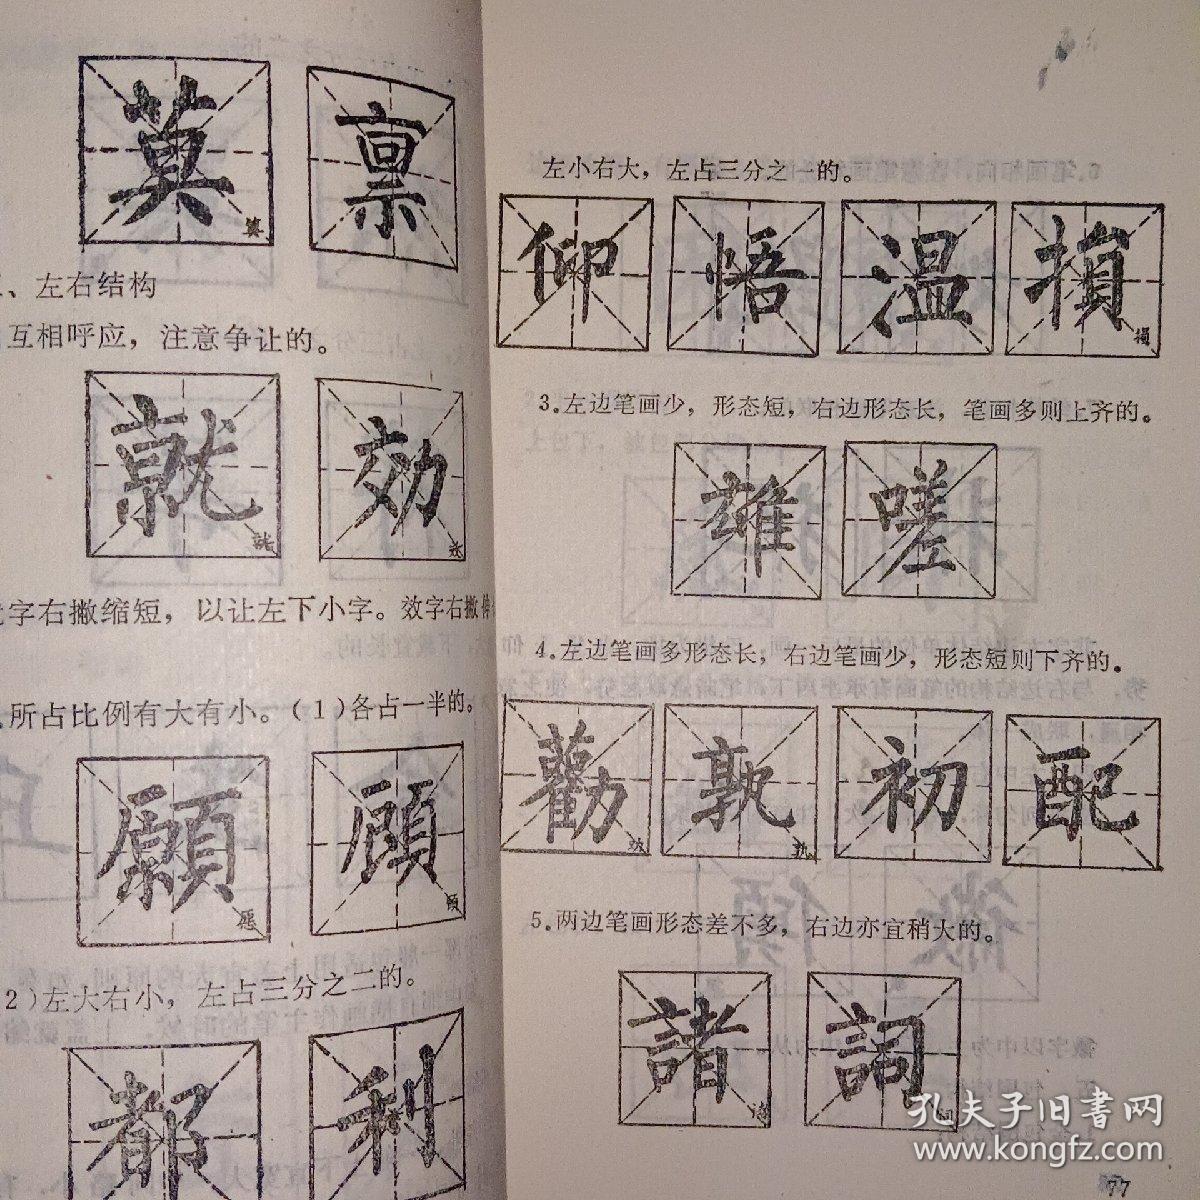 莫 禀
、左右结构
互相呼应，注意争让的。
就 効
字右撇缩短，以让左下小字。效字右撇伸
所占比例有大有小。（1）各占一半的。
願 顧
2）左大右小，左占三分之二的。
都 利
左小右大，左占三分之一的。
仰 悟 温 損
3.左边笔画少，形态短，右边形态长，笔画多则上齐的。
雄 嗟
4.左边笔画多形态长，右边笔画少，形态短则下齐的。
勸 孰 初 配
5.两边笔画形态差不多，右边亦宜稍大的。
諸 詞
77
孔夫子旧書网
www.kongfz.com